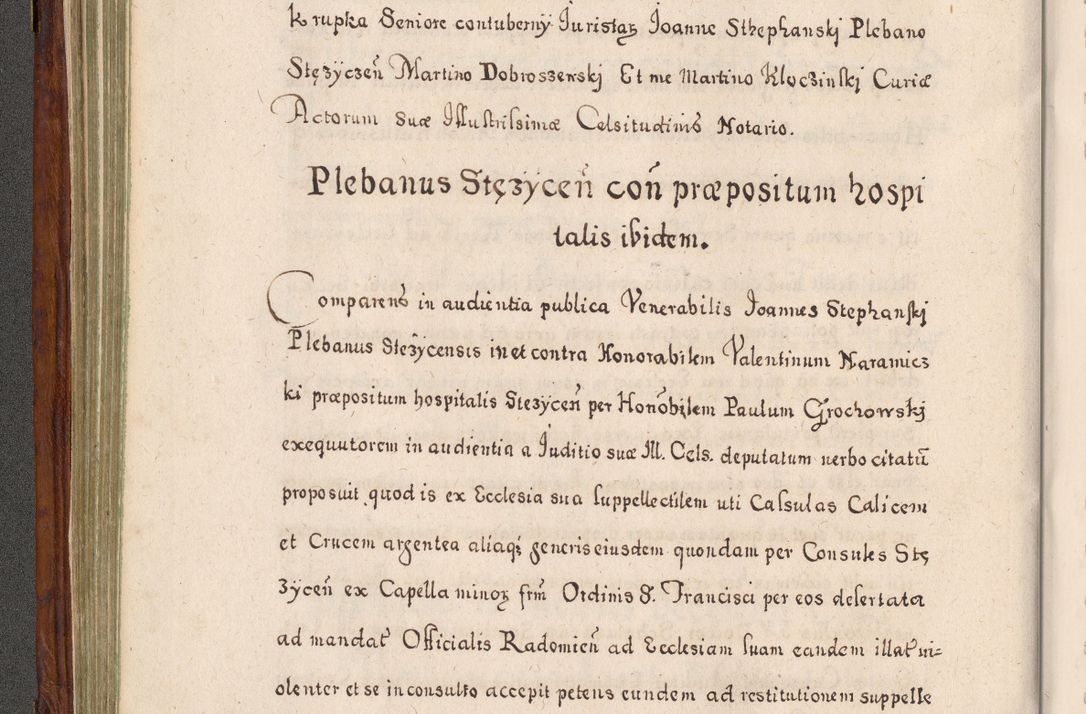 krupka Seniore contubernÿ Juristaꝝ Joanne Stzephanskj Plebano
Stężÿczen̄ Martino Dobroszewskj Et me Martino Kloczinskj Curiæ
Actorum suæ Illustrissimæ Celsitudinis Notario.
Plebanus Stęzÿcen̄ con̄ præpositum hospi
talis ibidem.
Comparens in audientia publica Venerabilis Joannes Stephanskj
Plebanus Stezÿcensis in et contra Honorabilem Valentinum Naramicz
ki præpositum hospitalis Stezÿcen̄ per Hono̅bilem Paulum Grochowskj
exequutorem in audientia a Juditio suæ Ill. Cels. deputatum verbo citatū
proposuit quod is ex Ecclesia sua suppellectilem uti Casulas Calicem
et Crucem argentea aliaqꝫ generis eiusdem quondam per Consules Stę
zÿcen̄ ex Capella minoꝝ frm̄ Ordinis S. Francisci per eos desertata
ad mandat̄ Officialis Radomien̄ ad Ecclesiam suam eandem illat̄ vi=
olenter et se inconsulto accepit petens eundem ad restitutionem suppelle